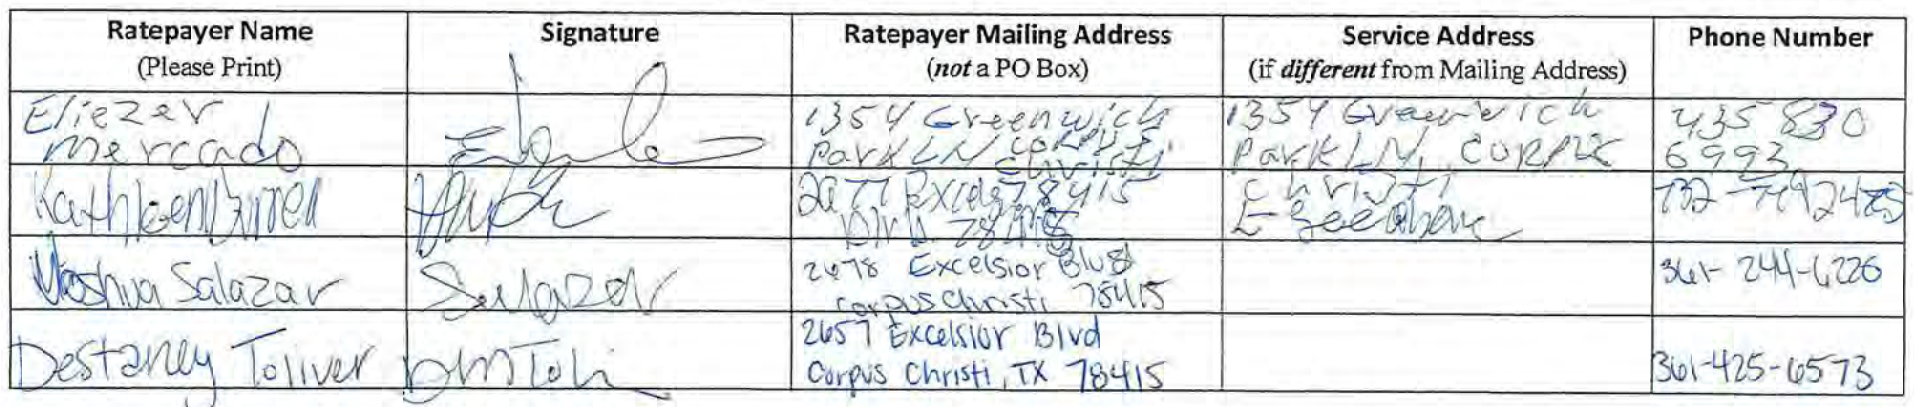 Ratepayer Name
(Please Print)
Signature
Ratepayer Mailing Address
(not a PO Box)
Service Address
(if different from Mailing Address)
Phone Number
Eliezer
Mercado
1354 Greenwich
Park LN Corpus
Christi
1354 Greenwich
Park LN, Corpus
Christi
435 830
6993
Kathleen
78415
78415
732
Joshua Salazar
Salazar
2678 Excelsior Blvd
Corpus Christi 78415
361-244-6226
Destaney Toliver
2657 Excelsior Blvd
Corpus Christi, TX 78415
361-425-6573